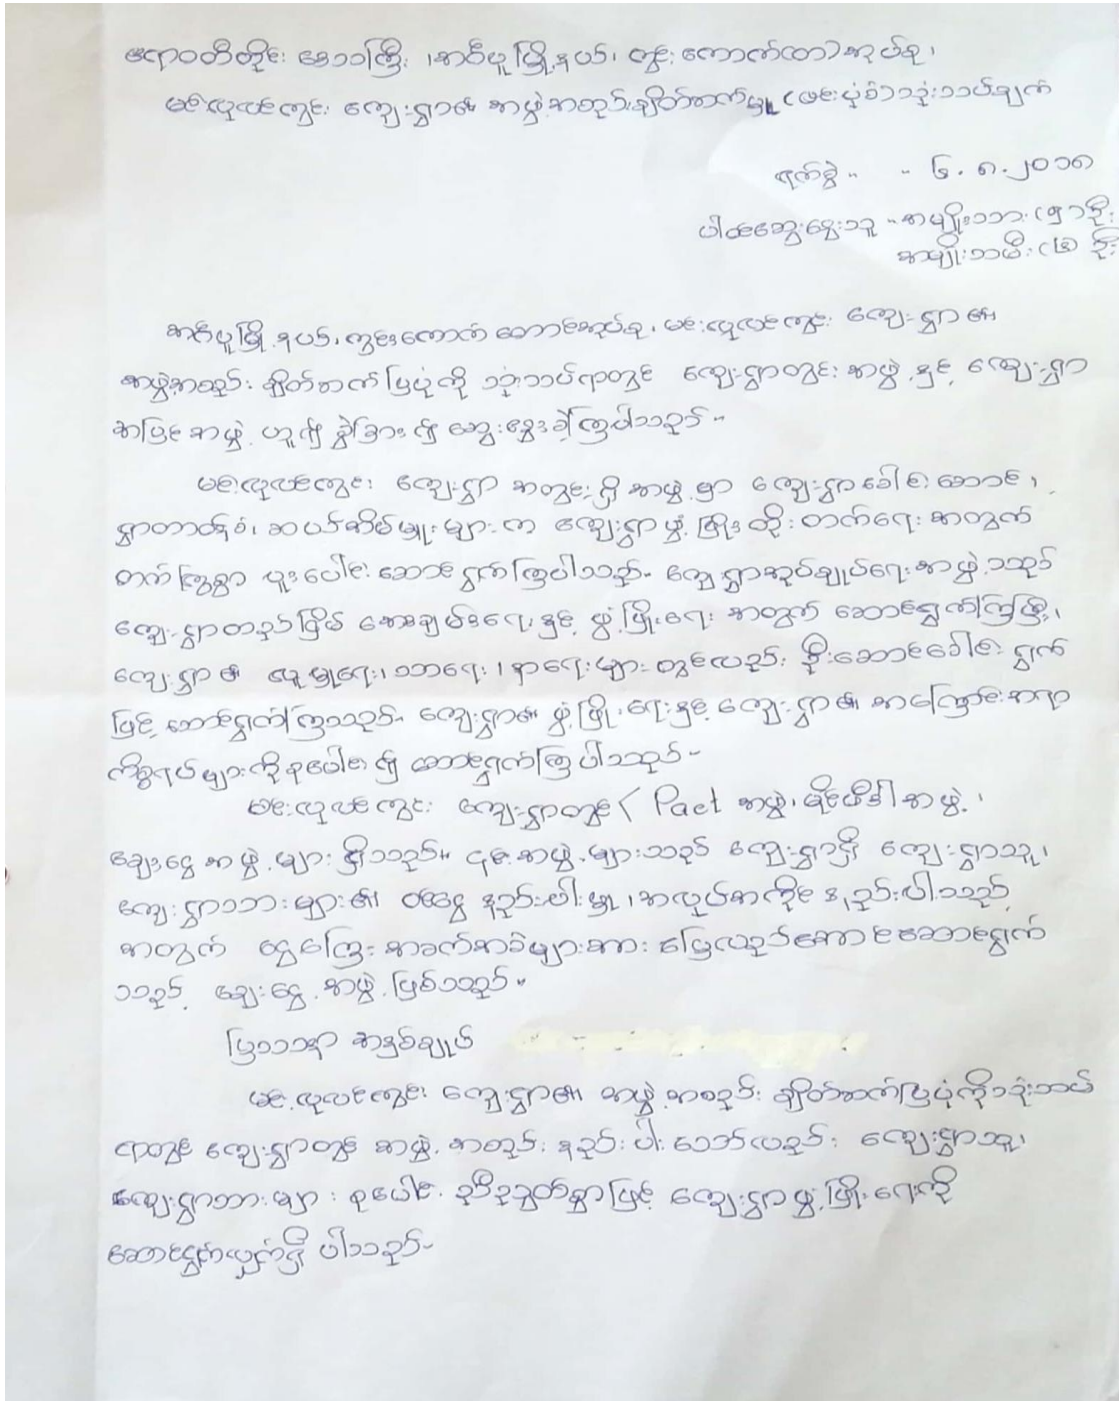 ဧရာဝတီတိုင်းဒေသကြီး၊ အင်္ဂပူမြို့နယ်၊ ကွင်းကောက် အုပ်စု၊
မအူလှလင်ကျွင်း ကျေးရွာ၏ အဖွဲ့အစည်းချိတ်ဆက်မှု (ဖန်ပုံစံ) သုံးသပ်ချက်
ရက်စွဲ - - ၆.၈.၂၀၁၈
ပါဝင်ဆွေးနွေးသူ - အမျိုးသား (၅) ဦး
အမျိုးသမီး ဦး
မြို့နယ်၊ ကွင်းကောက် တောင်အုပ်စု၊ ကျေးရွာ၏
အဖွဲ့အစည်း ချိတ်ဆက်ပြပုံကို သုံးသပ်ရာတွင် ကျေးရွာတွင်း အဖွဲ့နှင့် ကျေးရွာ
အပြင်အဖွဲ့ ဟူ၍ ခွဲခြား၍ ဆွေးနွေးခဲ့ကြပါသည်။
ကျေးရွာ အတွင်းရှိ အဖွဲ့မှာ ကျေးရွာခေါင်းဆောင်၊
ရွာတာဝန်ခံ၊ ဆယ်အိမ်မှူးများက ကျေးရွာဖွံ့ဖြိုးတိုးတက်ရေးအတွက်
တက်ကြွစွာ ပူးပေါင်းဆောင်ရွက်ကြပါသည်။ ကျေးရွာအုပ်ချုပ်ရေးအဖွဲ့သည်
ကျေးရွာတည်ငြိမ်အေးချမ်းရေးနှင့် ဖွံ့ဖြိုးရေး အတွက် ဆောင်ရွက်ကြပြီး၊
ကျေးရွာ၏ လူမှုရေး၊ သာရေး၊ နာရေးများတွင်လည်း ဦးဆောင်ခေါင်းရွက်
ပြု၍ ဆောင်ရွက်ကြသည်။ ကျေးရွာ၏ ဖွံ့ဖြိုးရေးနှင့် ကျေးရွာ၏ အကြောင်းအရာ
ကိစ္စရပ်များကို စုပေါင်း၍ ဆောင်ရွက်ကြပါသည်။
ကျေးရွာတွင် Pact အဖွဲ့၊ အဖွဲ့၊
ချေးငွေအဖွဲ့များ ရှိသည်။ ၎င်းအဖွဲ့များသည် ကျေးရွာရှိ ကျေးရွာသူ၊
ကျေးရွာသားများ၏ ဝင်ငွေ နည်းပါးမှု၊ အလုပ်အကိုင် နည်းပါးသည့်
အတွက် ငွေကြေး အခက်အခဲများအား ပြေလည်အောင် ဆောင်ရွက်
သည့် ချေးငွေအဖွဲ့ ဖြစ်သည်။
ပြဿနာ အနှစ်ချုပ်
ကျေးရွာ၏ အဖွဲ့အစည်း ချိတ်ဆက်ပြပုံကိုသုံးသပ်
ရာတွင် ကျေးရွာတွင် အဖွဲ့အစည်း နည်းပါးသော်လည်း ကျေးရွာသူ၊
ကျေးရွာသားများ စုပေါင်း ညီညွတ်စွာဖြင့် ကျေးရွာဖွံ့ဖြိုးရေးကို
ဆောင်ရွက်လျှက်ရှိပါသည်။